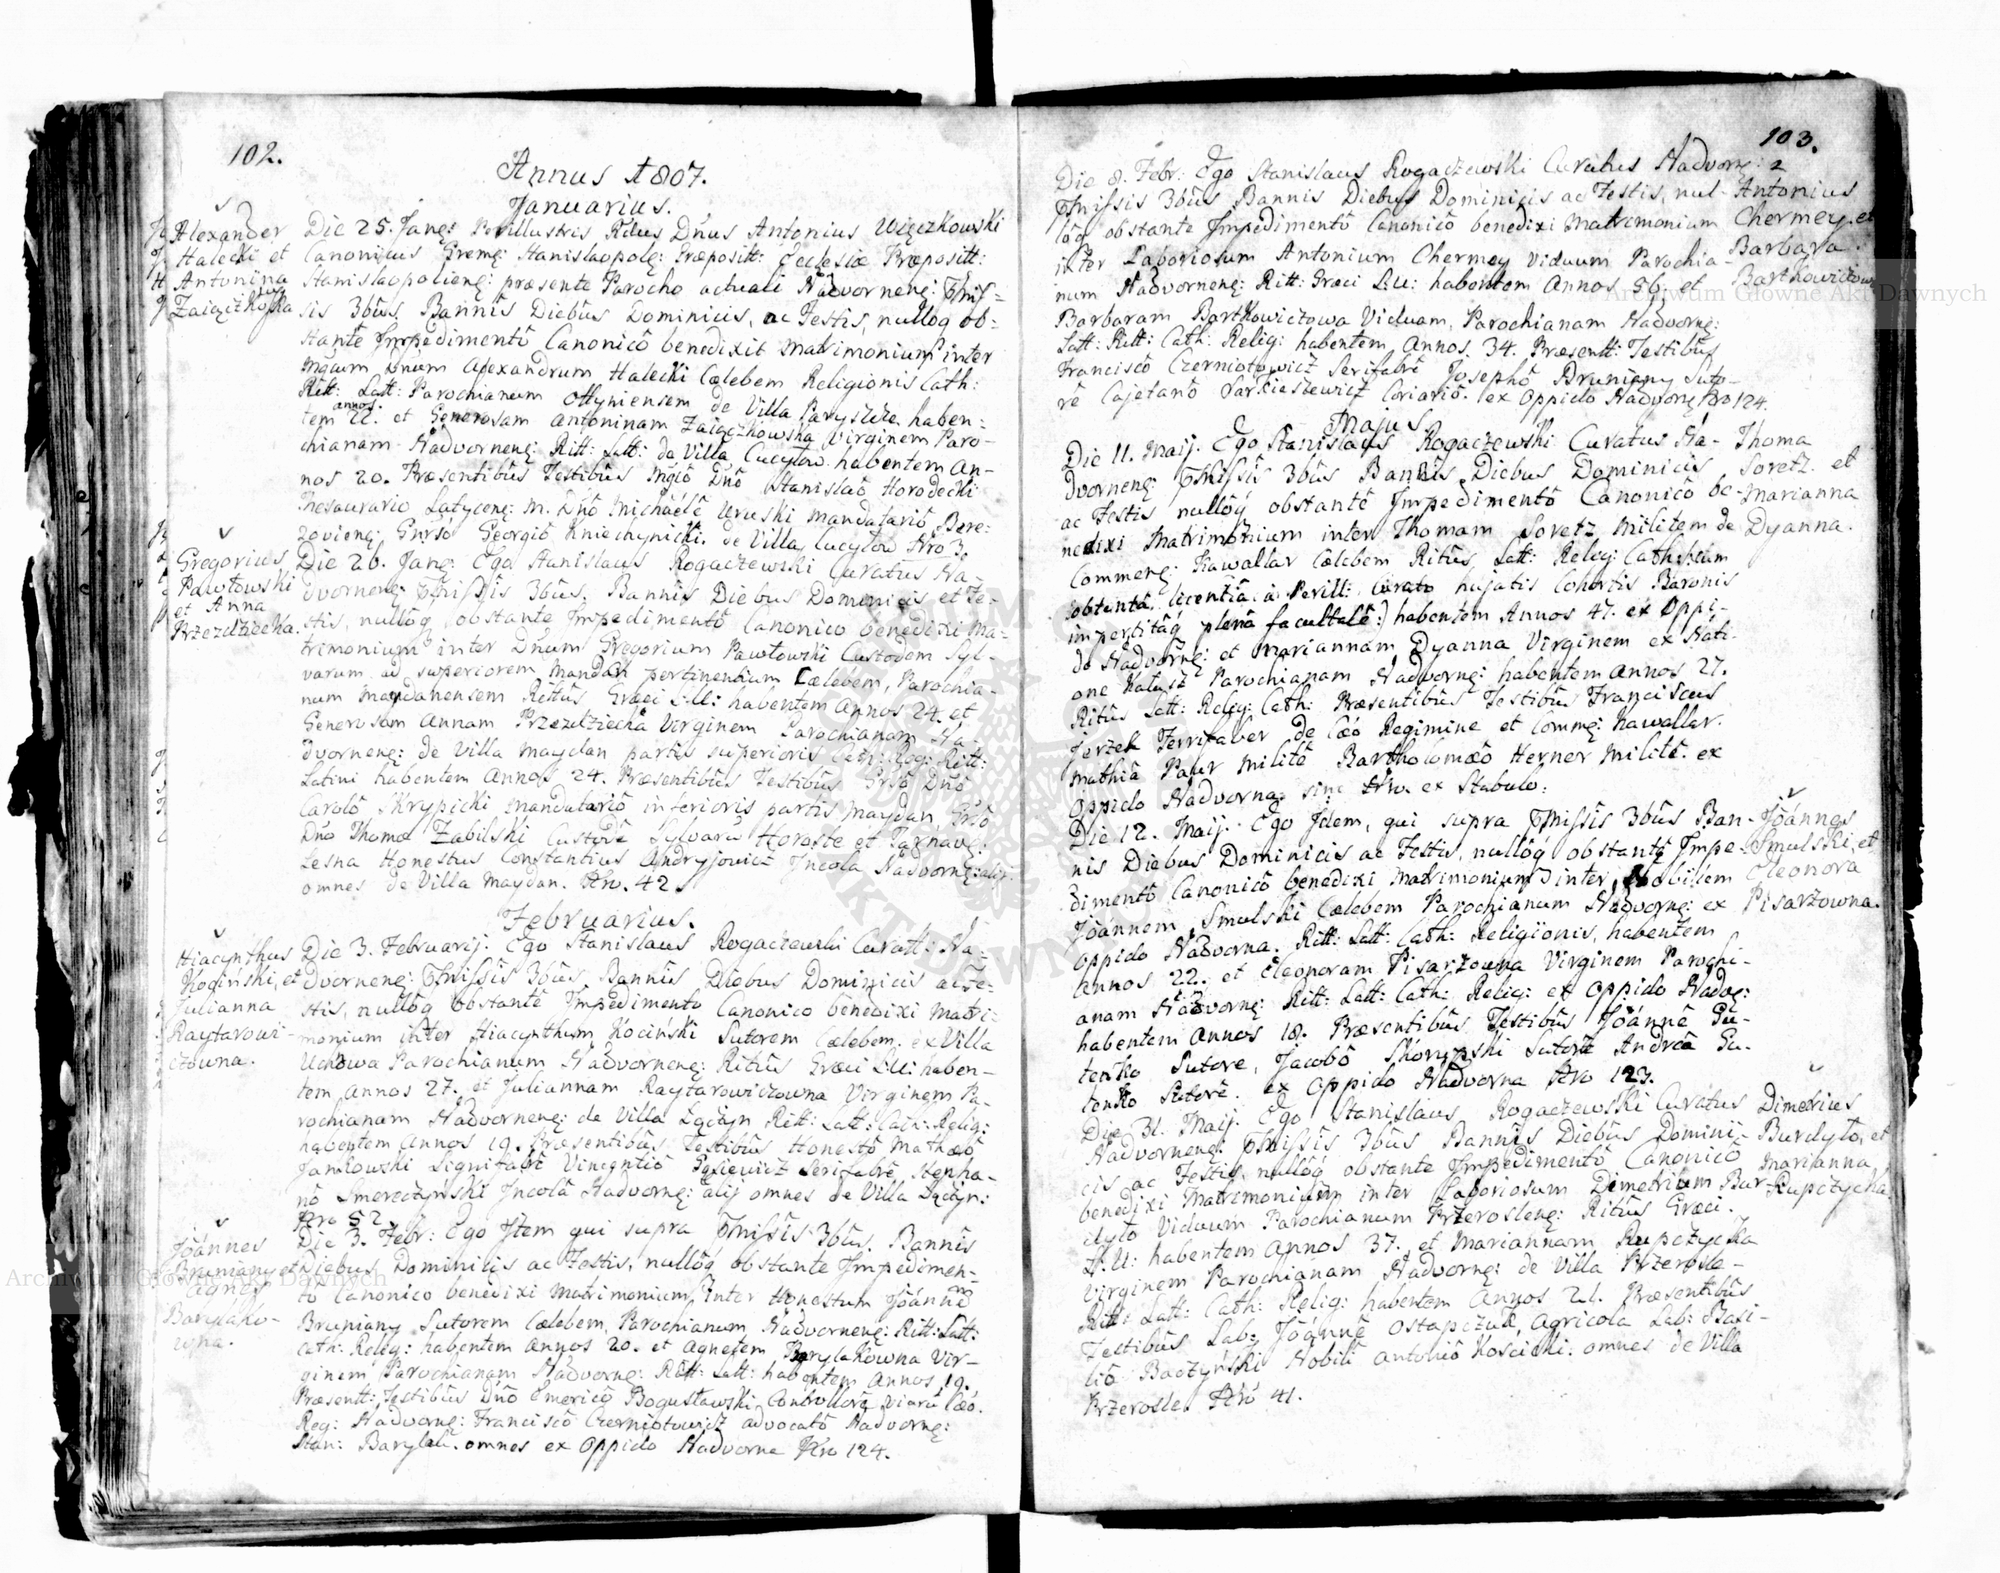 102.
Annus 1807.
Januarius.
Alexander
Halecki et
Antonina
Zaiączkoska
Die 25. Janę: Perillustris Rdus Dńus Antonius Więczkowski
Canonicus Gremę: Stanislaopolę: Præposit: Ecclesiæ Præposit:
Stanislaopolienę: præsente Parocho actuali Nadvornenę: Pmis=
sis 3bûs. Bannis Diebûs Dominicis, ac Festis, nullôq ob=
stante Impedimentô Canonicô benedixit Matrimonium inter
Mgûm Dnum Alexandrum Halecki Cælebem Religionis Cath:
Ritt: Latt: Parochianum Ottyniensem de Villa Paryszcze haben:
annos
tem 22. et Generosam Antoninam Zaiączkowska Virginem Paro-
chianam Nadvornenę: Ritt: Latt: de Villa Cucyłow habentem An-
nos 20. Præsentibûs Testibûs Mgiô Dnô Stanislaô Horodecki
Thesaurario Latycenę: M. Dńô Michâelê Uruski Mandatariô Bere=
zovienę: Gnrsô Georgiô Kniehynicki. de Villa Cucyłow Nro 3.
Gregorius
Pawłowski
et Anna
Przezdziecka.
Die 26. Janę: Ego Stanislaus Rogaczewski Curatus Na-
dvornenę: Pmissis 3bûs. Bannis Diebus Dominicis et Fe-
stis, nullôq obstante Impedimentô Canonico benedixi Ma-
trimonium inter Dnum Gregorium Pawłowski Custodem Syl-
varum ad superiorem Mandan pertinentium Cælebem, Parochia-
num Maydanensem Ritûs Græci L:U: habentem Annos 24. et
Generosam Annam Przezdziecka Virginem Parochianam Na-
dvornenę: de Villa Maydan partis superioris Cath: Reg: Ritt:
Latini habentem Annos 24. Præsentibûs Testibûs Grsô Dnô
Carolô Skrypicki Mandatariô inferioris partis Maydan, Grsô
Dńo Thoma Zabilski Custodê Sylvarû Horoste et Tarnave:
Lesna Honestus Constantius Andryjowicz Incola Nadvornę: alij
omnes de Villa Maydan. Nro. 42.
Februarius.
Hiacynthus
Kociński, et
Julianna
Raytarowi-
czowna.
Die 3. Februarij. Ego Stanislaus Rogaczewski Curatt: Na-
dvornenę: Pmissis 3bûs. Bannis Diebus Dominicis ac Fe-
stis, nullôq obstantê Impedimento Canonico benedixi Matri-
monium inter Hiacynthum Kociński Sutorem Cælebem. ex Villa
Parochianum Nadvornenę: Ritûs Græci L:U: haben-
tem Annos 27. et Juliannam Raytarowiczowna Virginem Pa-
rochianam Nadvornenę: de Villa Łączyn Ritt: Latt: Cath: Relig:
habentem Annos 19. Præsentibûs Testibûs Honestô Mathæô
Jankowski Lignifabrê Vincentiô Serifabrê, Stepha-
nô Smereczyński Incolâ Nadvornę: alij omnes de Villa Łączyn:
Nro 52.
Jôánnes
Bruniany et
Agnes
Barylako-
wna.
Die 3. Febr: Ego Item qui supra Pmissis 3bûs. Bannis
Diebus Dominicis ac Festis, nullôq obstante Impedimen-
to Canonico benedixi Matrimonium inter Honestum Jôánnem
Bruniany Sutorem Cælebem, Parochianum Nadvornenę: Ritt: Latt:
Cath: Relig: habentem Annos 20. et Agnetem Barylakowna Vir-
ginem, Parochianam Nadvornę: Ritt: Latt: habentem Annos 19.
Præsentt: Testibûs Dńô Emericô Bogusławski Controllorê viarû Cæo.
Reg: Nadvornę: Franciscô Czerniotowicz advocatô Nadvornę:
Stan: Barylak. omnes ex Oppido Nadvorna Nro 124.
103.
Die 8. Febr: Ego Stanislaus Rogaczewski Curatus Nadvornę:
Pmissis 3bûs Bannis Diebus Dominicis ac Festis, nul-
lôq obstante Impedimentô Canonicô benedixi Matrimonium
inter Laboriosum Antonium Chermey Viduum Parochia-
num Nadvornenę: Ritt: Græci L:U: habentem Annos 56. et
Barbaram Bartkowiczowa Viduam, Parochianam Nadvornę:
Latt: Ritt: Cath: Relig: habentem Annos. 34. Præsentt: Testibûs
Franciscô Czerniotowicz Serifabrê Josephô Bruniany Suto-
rê Cajetanô Sarkieszewicz Coriariô. ex Oppido Nadvornę Nro 124.
Antonius
Chermey. et
Barbara
Bartkowiczow
Majus
Die 11. Maij. Ego Stanislaus Rogaczewski Curatus Na-
dvornenę: Pmissis 3bûs Bannis Diebus Dominicis
ac Festis nullôq obstantê Impedimentô Canonicô be-
nedixi Matrimonium inter Thomam Soretz Militem de
Commenę: Kawallar Cælebem Ritûs Latt: Relig: Cath: (cum
obtenta licentiâ â Perill: Curato hujatis Cohortis Baronis
impertitâq plenâ facultatê:) habentem Annos 47. ex Oppi-
do Nadvornę: et Mariannam Dyanna Virginem ex Nati-
one Kałusz Parochianam Nadvornę: habentem Annos 27.
Ritûs Latt: Relig: Cath: Præsentibûs Testibûs Franciscus
Jerzek Ferrifaber de Cæo Regimine et Commę: Kawallar.
Mathiâ Paur Militê Bartholomæô Herner Militê. ex
Oppido Nadvorna sine Nro. ex Stabulo.
Thoma
Soretz et
Marianna
Dyanna.
Die 12. Maij. Ego Idem, qui supra Pmissis 3bûs Ban-
nis Diebus Dominicis ac Festis, nullôq obstantê Impe-
dimentô Canonicô benedixi Matrimonium inter Nobilem
Jôánnem Smulski Cælebem Parochianum Nadvornę: ex
Oppido Nadvorna. Ritt: Latt: Cath: Religionis, habentem
Annos 22. et Eleonoram Pisarzowna Virginem Parochi-
anam Nadvornę: Ritt: Latt: Cath: Relig: ex Oppido Nadvę:
habentem Annos 18. Præsentibûs Testibûs Jôánnê Gu-
tenko Sutore, Jacobô Skórupski Sutorê Andreâ Gu-
tenko Sutorê. ex Oppido Nadvorna Nro 123.
Jôánnes
Smulski, et
Eleonora
Pisarzowna.
Die 31. Maij. Ego Stanislaus Rogaczewski Curatus
Nadvornenę: Pmissis 3bûs Bannis Diebûs Domini-
cis ac Festis, nullôq obstante Impedimentô Canonicô
benedixi Matrimonium inter Laboriosum Demetrium Bur-
dyło Viduum Parochianum Przeroslenę: Ritûs Græci.
L.U: habentem Annos 37. et Mariannam Rupczycka
Virginem Parochianam Nadvornę: de Villa Przerosle-
Ritt: Latt: Cath: Relig: habentem Annos 21. Præsentibûs
Testibûs Lab: Jôánnê Ostapczuk, Agricola Lab: Basi-
liô Baczyński Nobili Antoniô Kościcki. omnes de Villa
Przerosle. Nrô 41.
Dimetrius
Burdyło, et
Marianna
Rupczycka
Archiwum Główne Akt Dawnych
Archiwum Główne Akt Dawnych